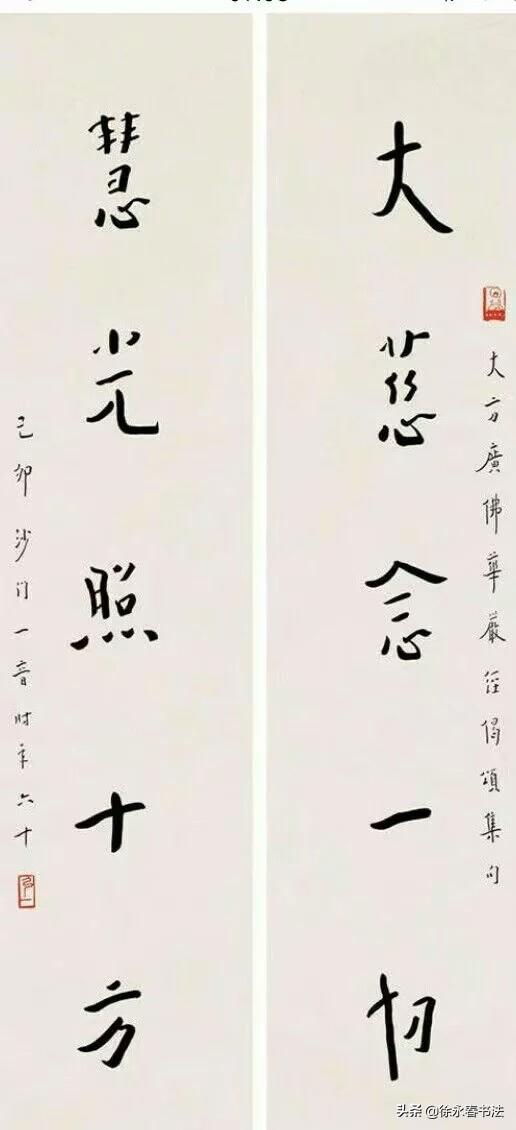 大方廣佛華嚴經偈頌集句
大慈念一切
慧光照十方
己卯沙门一音时年六十
头条 @徐永春书法